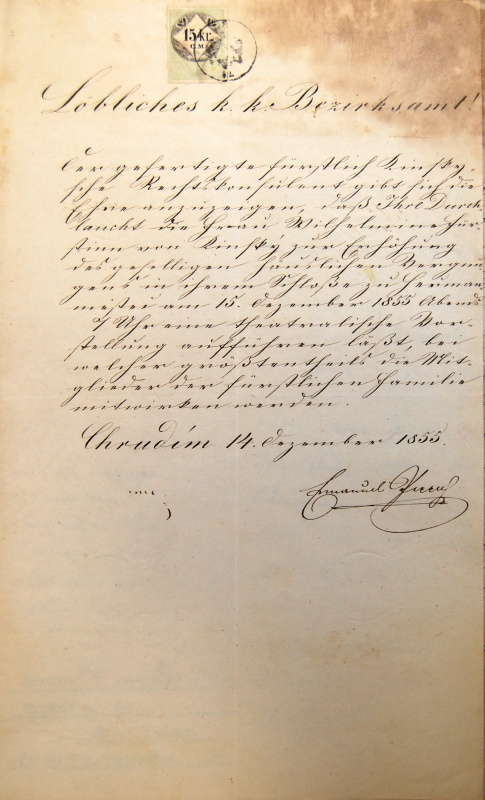 15 kr.
C.M.
Löbliches k. k. Bezirksamt!
Der gefertigte fürstlich Kinsky-
sche Rechtskonsulent gibt sich die
Ehre anzuzeigen, daß Ihre Durch
laucht die Frau Wilhelmine Für-
stinn von Kinsky zur Erhöhung
des geselligen häuslichen Vergnü
gens in ihrem Schloße zu Herman
mestei am 15. Dezember 1855 Abends
7 Uhr eine theatralische Vor-
stellung aufführen läßt, bei
welcher größtentheils die Mit-
glieder der fürstlichen Familie
mitwirken werden.
Chrudim 14. Dezember 1855.
Emanuel